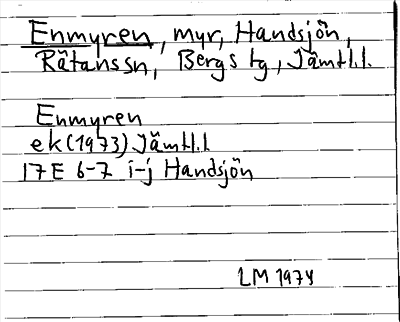 Enmyren, myr, Handsjön,
Rätanssn, Bergs tg, Jämtl.l.
Enmyren
ek (1973) Jämtl.l
17E 6-7 i-j Handsjön
LM 1974